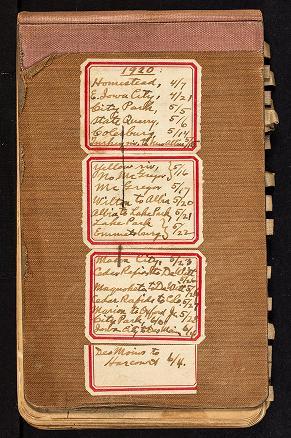 1920.
Homestead, 4/7
E. Iowa City, 4/21
City Park, 5/5
State Quarry, 5/6
Colesburg 5/14
Turkey riv. to
Yellow riv, } 5/16
No. McGregor
Mc Gregor 5/17
Wilton to Albia 5/20
Albia to Lake Park 5/21
Lake Park } 5/22
Emmetsburg
Mason City, 5/23
Cedar Rapids to DeWitt
Maquoketa to DeWitt
Cedar Rapids to Clo
Marion to Oxford Jc.
City Park,
Iowa City to Des Moi.
Des Moines to
Harcourt 6/4.